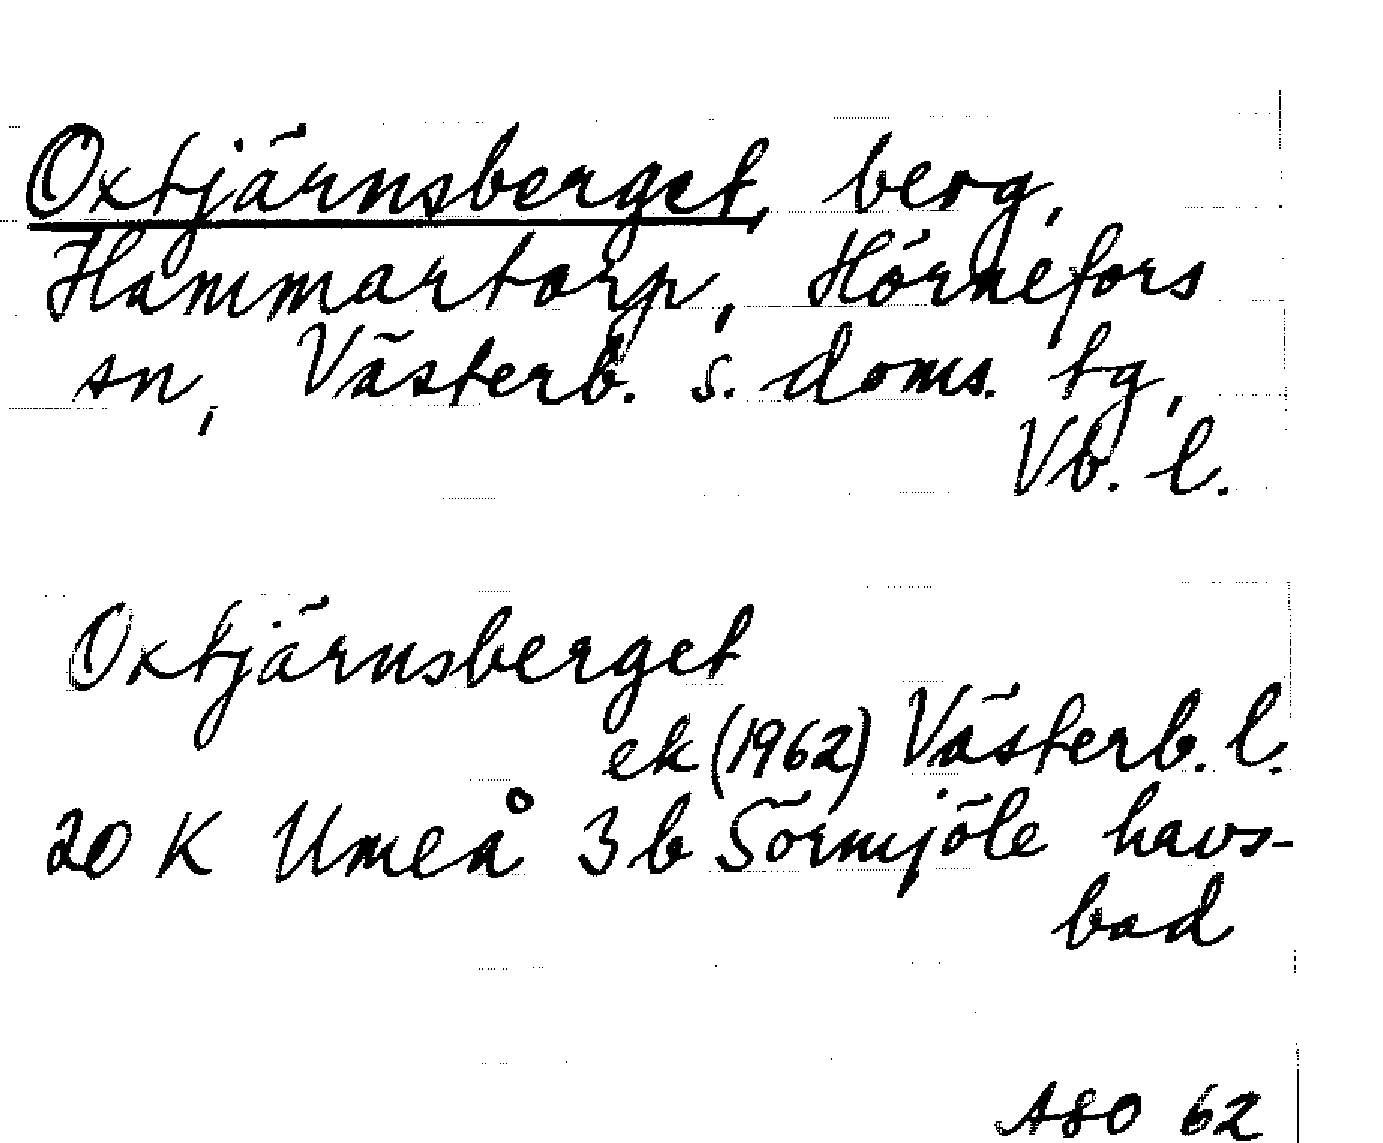 Oxtjärnsberget, berg,
Hammartorp, Hörnefors
sn, Västerb. s. doms. tg,
Vb. l.
Oxtjärnsberget
ek (1962) Västerb. l.
20 K Umeå 3 b Sörmjöle havs-
bad
ASO 62